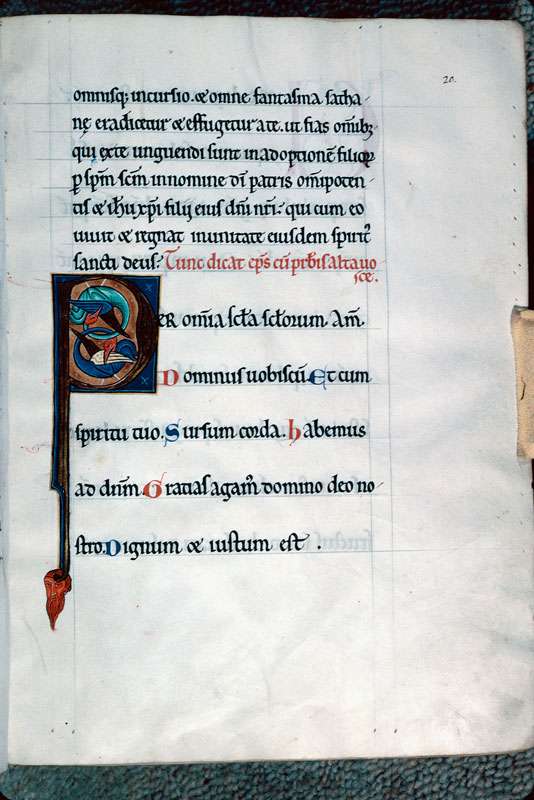 20.
omnisq; incursio. & omne fantasma satha-
nę eradicetur & effugetur a te. ut fias om̅ib;
qui ex te unguendi sunt in adoptione̅ filioꝝ
ꝑ sp̅m sc̅m in nomine dī patris om̅ipoten-
tis & ih̅u xp̅i filij eius dn̅i nr̅i. qui cum eo
uiuit & regnat in unitate eiusdem spirit᷒
sancti deus. Tunc dicat ep̅s cū prb̅is alta uo
ce.
PER om̅ia scl̅a scl̅orum. Am̅.
Dominus uobiscū. Et cum
spiritu tuo. Sursum corda. habemus
ad dn̅m. Gratias agam᷒ domino deo no-
stro. Dignum & iustum est .